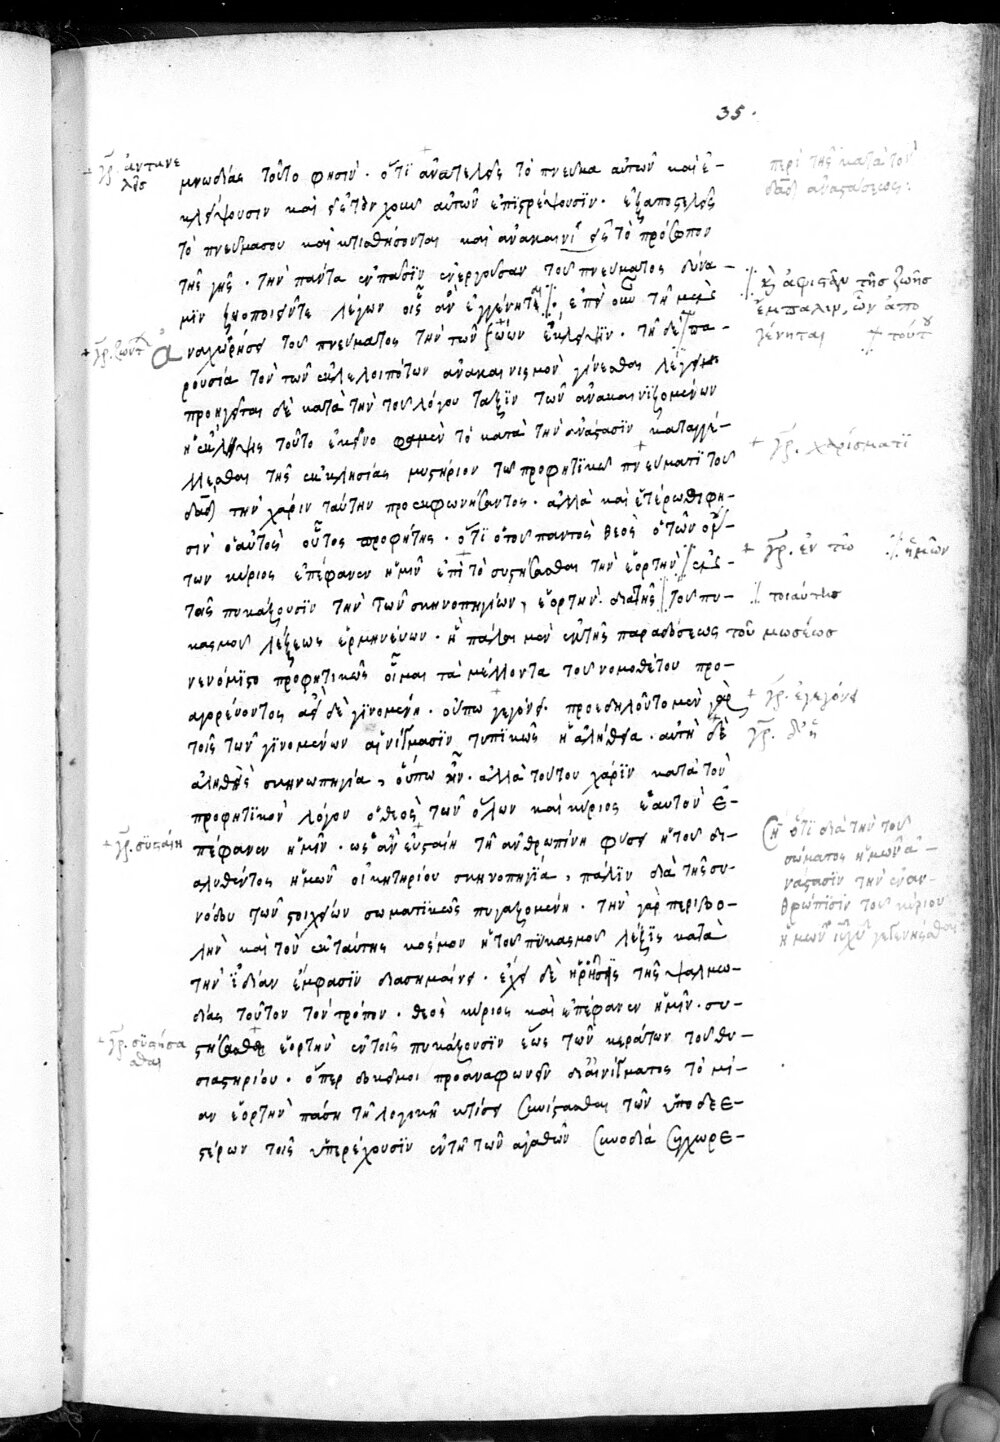 35.
+ γρ. ἀντανε
λεῖς
μνωδίας τοῦτο φησὶν· ὅτι ἀνατελεῖς τὸ πνεῦμα αὐτῶν καὶ ἐ-
κλείψουσιν καὶ εἰς τὸν χοῦν αὐτῶν ἐπιστρέψουσιν· ἐξαποστελεῖς
τὸ πνεῦμα σου καὶ κτισθήσονται καὶ ἀνακαινιεῖς τὸ πρόσωπον
τῆς γῆς· τὴν πάντα ἐν πᾶσιν ἐνεργοῦσαν τοῦ πνεύματος δύνα-
μιν ζωοποιεῖν τε λέγων οἷς ἂν ἐγγένηται ⁒ ἐπὶ οὖν τῇ μὲν
+ γρ. ζώντων ἀ
ναχωρήσει τοῦ πνεύματος τὴν τῶν ζώων ἔκλειψιν· τῇ δὲ πα-
ρουσίᾳ τὸν τῶν ἐκλελοιπότων ἀνακαινισμὸν γίνεσθαι λέγει
προηγεῖται δὲ κατὰ τὴν τοῦ λόγου τάξιν τῶν ἀνακαινιζομένων
ἡ ἔκλειψις τοῦτο ἐκεῖνο φαμὲν τὸ κατὰ τὴν ἀνάστασιν καταγγέ-
λλεσθαι τῆς ἐκκλησίας μυστήριον τῷ προφητικῷ πνεύματι τοῦ
δαδ τὴν χάριν ταύτην προεκφωνήσαντος· ἀλλὰ καὶ ἑτέρωθι φη-
σὶν ὁ αὐτὸς οὗτος προφήτης· ὅτι ὁ τοῦ παντὸς θεὸς ὁ τῶν ὄ-
ντων κύριος ἐπέφανεν ἡμῖν ἐπὶ τὸ συστήσασθαι τὴν ἑορτὴν ἐν
τοῖς πυκάζουσιν τὴν τῶν σκηνοπηγίων, ἑορτὴν· διὰ τῆς τοῦ πυ-
κασμοῦ λέξεως ἑρμηνεύων· ἣ πάλαι μὲν ἐκ τῆς παραδόσεως τοῦ μωσέως
νενόμιστο προφητικῶς οἶμαι τὰ μέλλοντα τοῦ νομοθέτου προ-
αγορεύοντος ἀεὶ δὲ γινομένη· οὔπω γεγόνει· προεδηλοῦτο μὲν γὰρ
τοῖς τῶν γινομένων αἰνίγμασιν τυπικῶς ἡ ἀλήθεια· αὐτὴ δὲ
ἀληθὴς σκηνοπηγία, οὔπω ἦν· ἀλλὰ τούτου χάριν κατὰ τὸν
προφητικὸν λόγον ὁ θεὸς τῶν ὅλων καὶ κύριος ἑαυτὸν ἐ-
+ γρ. συσταίη
πέφανεν ἡμῖν· ὡς ἂν εὐσταίη τῇ ἀνθρωπίνῃ φύσει ἡ τοῦ δι-
αλυθέντος ἡμῶν οἰκητηρίου σκηνοπηγία, πάλιν διὰ τῆς συ-
νόδου τῶν στοιχείων σωματικῶς πυκαζομένη· τὴν γὰρ περιβο-
λὴν καὶ τὸν ἐκ ταύτης κόσμον ἡ τοῦ πυκασμοῦ λέξις κατὰ
τὴν ἰδίαν ἔμφασιν διασημαίνει· ἔχει δὲ ἡ ῥῆσις τῆς ψαλμω-
δίας τοῦτον τὸν τρόπον· θεὸς κύριος καὶ ἐπέφανεν ἡμῖν· συ-
+ γρ. συστήσα
σθαι
στήσασθαι ἑορτὴν ἐν τοῖς πυκάζουσιν ἕως τῶν κεράτων τοῦ θυ-
σιαστηρίου· ὅπερ δοκεῖ μοι προαναφωνεῖν δι' αἰνίγματος τὸ μί-
αν ἑορτὴν πάσῃ τῇ λογικῇ κτίσει συνίστασθαι τῶν ὑποδεε-
στέρων τοῖς ὑπερέχουσιν ἐν τῇ τῶν ἀγαθῶν συνοδίᾳ συγχορε-
περὶ τῆς κατὰ τὸν
δαδ ἀναστάσεως:
⁒ κἂν ἀφιστᾶν τῆς ζωῆς
ἔμπαλιν, ὧν ἀπο
γένηται + τούτου
+ γρ. χαρίσματι
+ γρ. ἐν τῷ ⁒ ἡμῶν
⁒ τοιαύτης
+ γρ. ἐγεγόνει
γρ. δὲ ἡ
ση ὅτι διὰ τὴν τοῦ
σώματος ἡμῶν ἀ-
νάστασιν τὴν ἐναν-
θρώπισιν τοῦ κυρίου
ἡμῶν γεγενῆσθαι